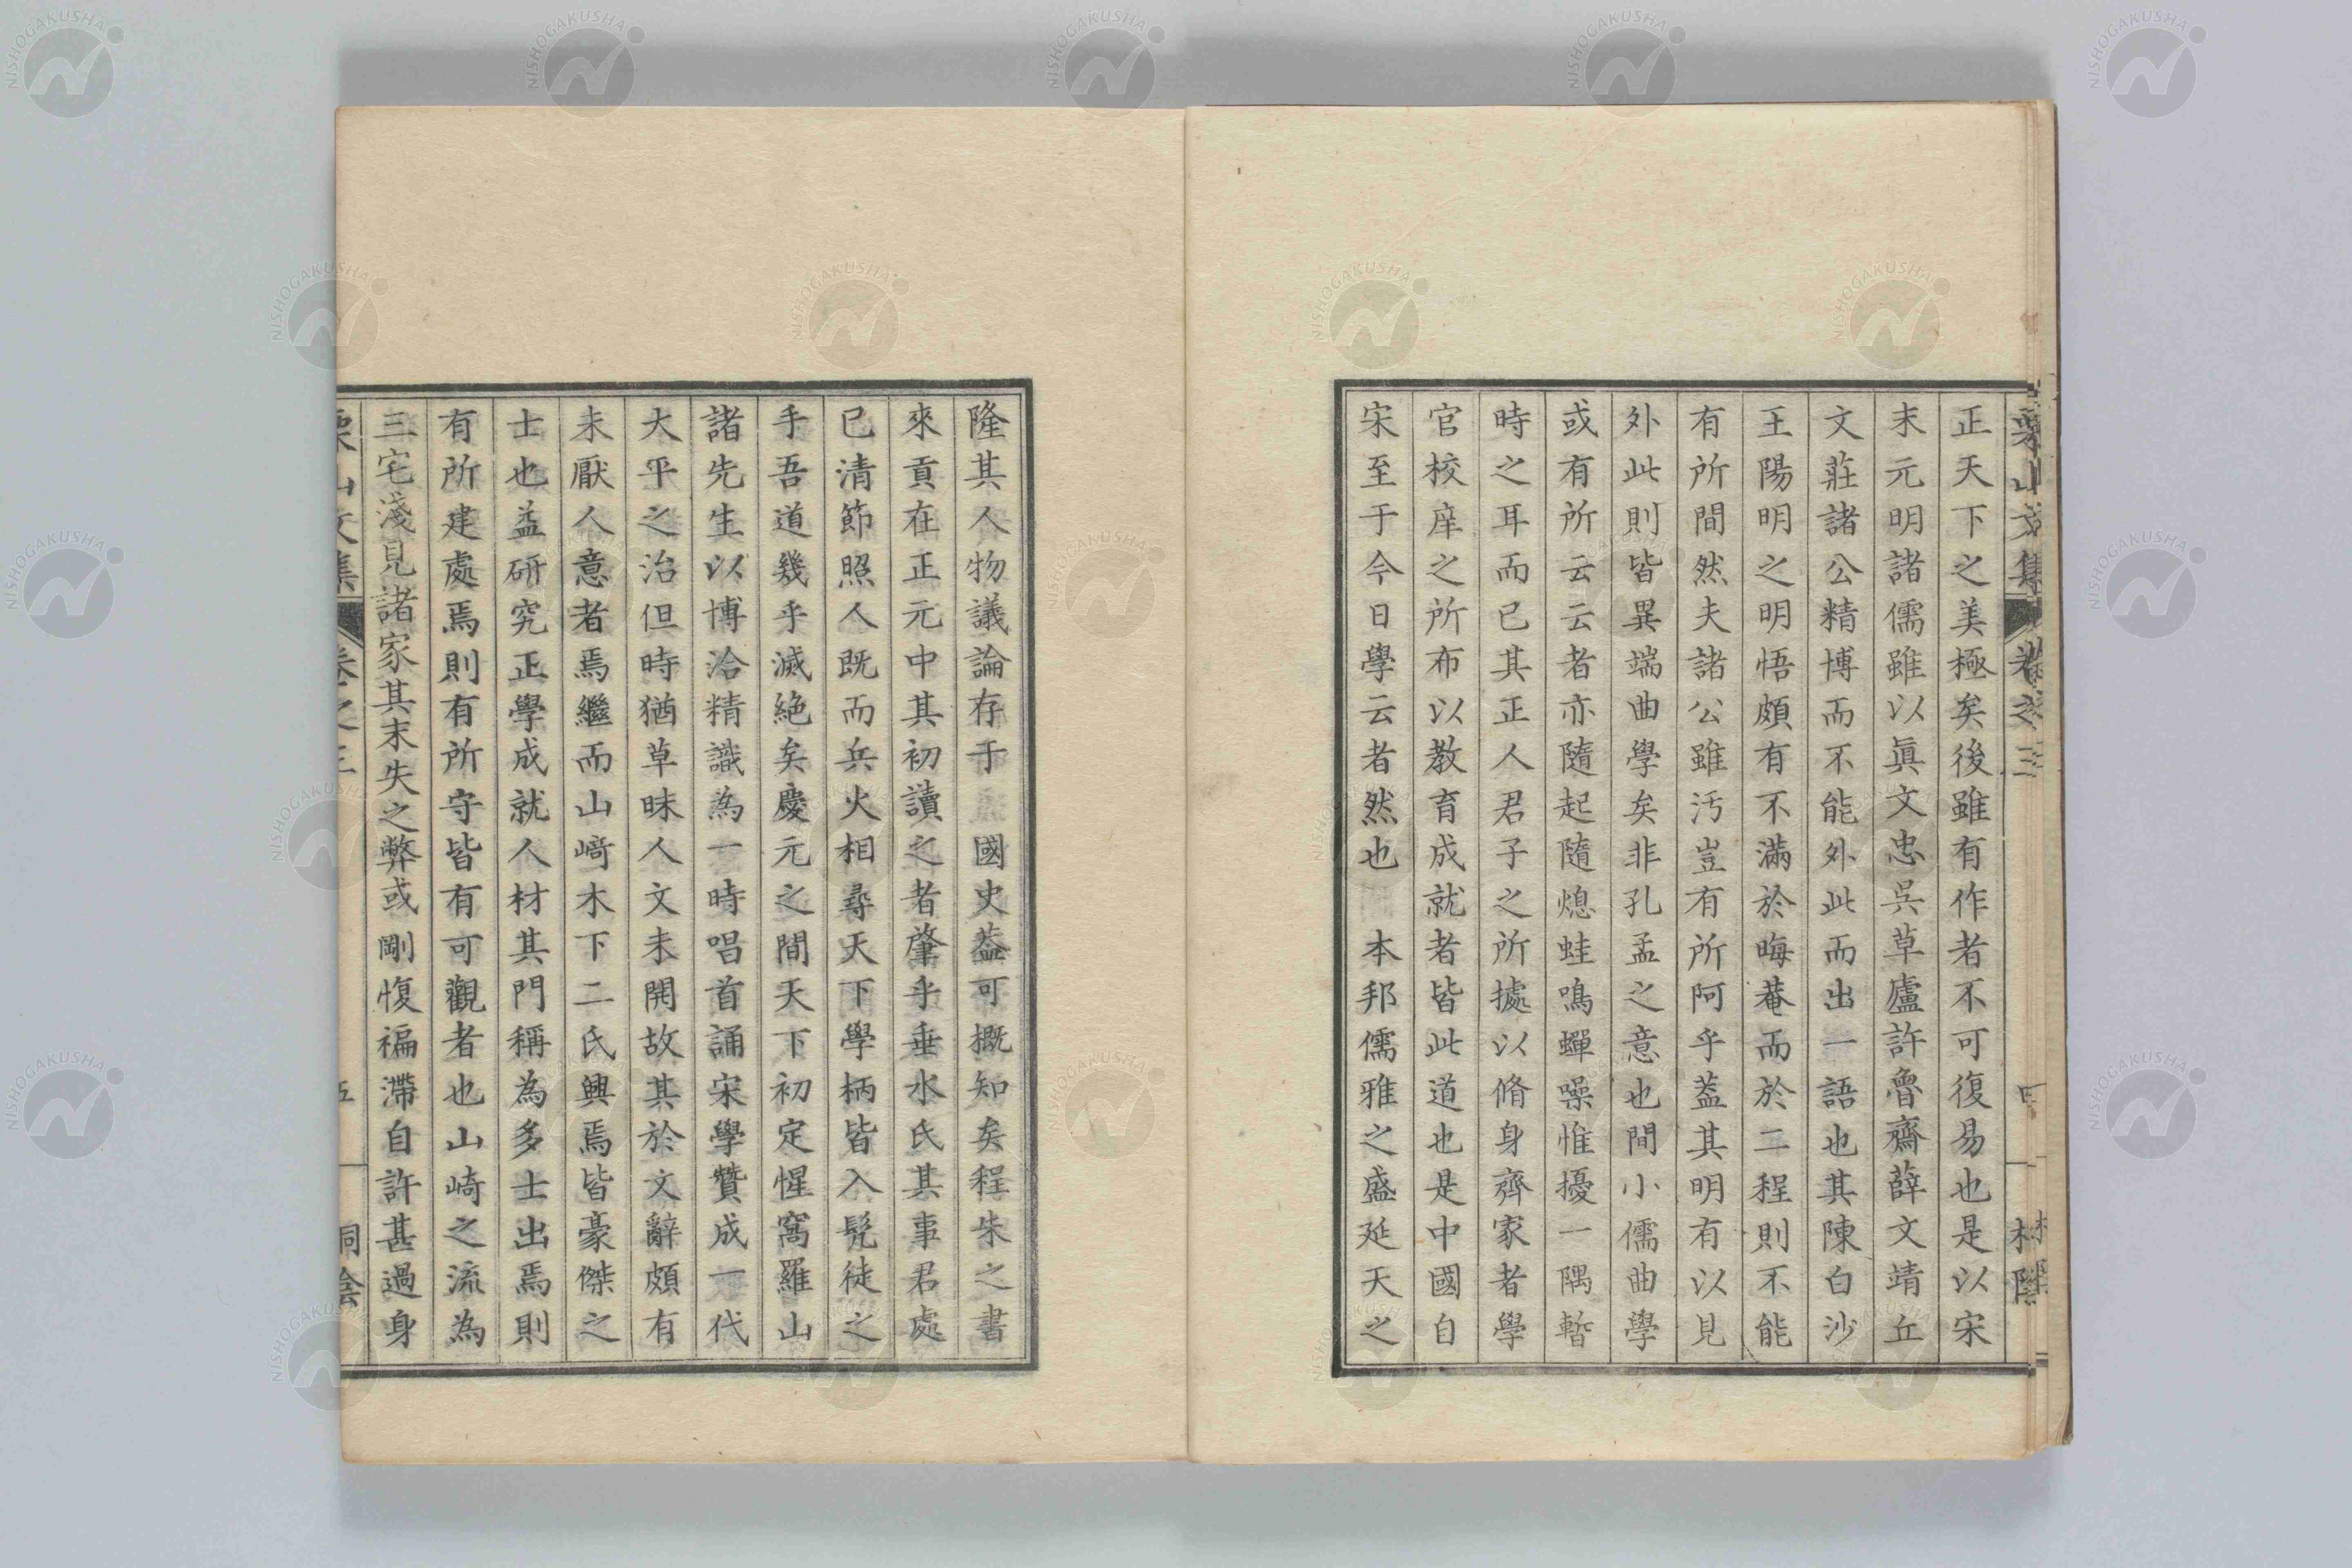 正天下之美極矣後雖有作者不可復易也是以宋
末元明諸儒雖以眞文忠吳草廬許魯齋薛文靖丘
文莊諸公精博而不能外此而出一語也其陳白沙
王陽明之明悟頗有不滿於晦菴而於二程則不能
有所間然夫諸公雖汚豈有所阿乎蓋其明有以見
外此則皆異端曲學矣非孔孟之意也間小儒曲學
或有所云云者亦隨起隨熄蛙鳴蟬噪惟擾一隅暫
時之耳而已其正人君子之所據以脩身齊家者學
官校庠之所布以教育成就者皆此道也是中國自
宋至于今日學云者然也 本邦儒雅之盛延天之
隆其人物議論存于 國史葢可概知矣程朱之書
來貢在正元中其初讀之者肇乎垂水氏其事君處
已清節照人既而兵火相尋天下學柄皆入髡徒之
手吾道幾乎滅絕矣慶元之間天下初定惺窩羅山
諸先生以博洽精識為一時唱首誦宋學贊成一代
大平之治但時猶草昧人文未開故其於文辭頗有
未厭人意者焉繼而山﨑木下二氏興焉皆豪傑之
士也益研究正學成就人材其門稱為多士出焉則
有所建處焉則有所守皆有可觀者也山崎之流為
三宅淺見諸家其末失之弊或剛愎褊滯自許甚過身
栗山文集 卷之三